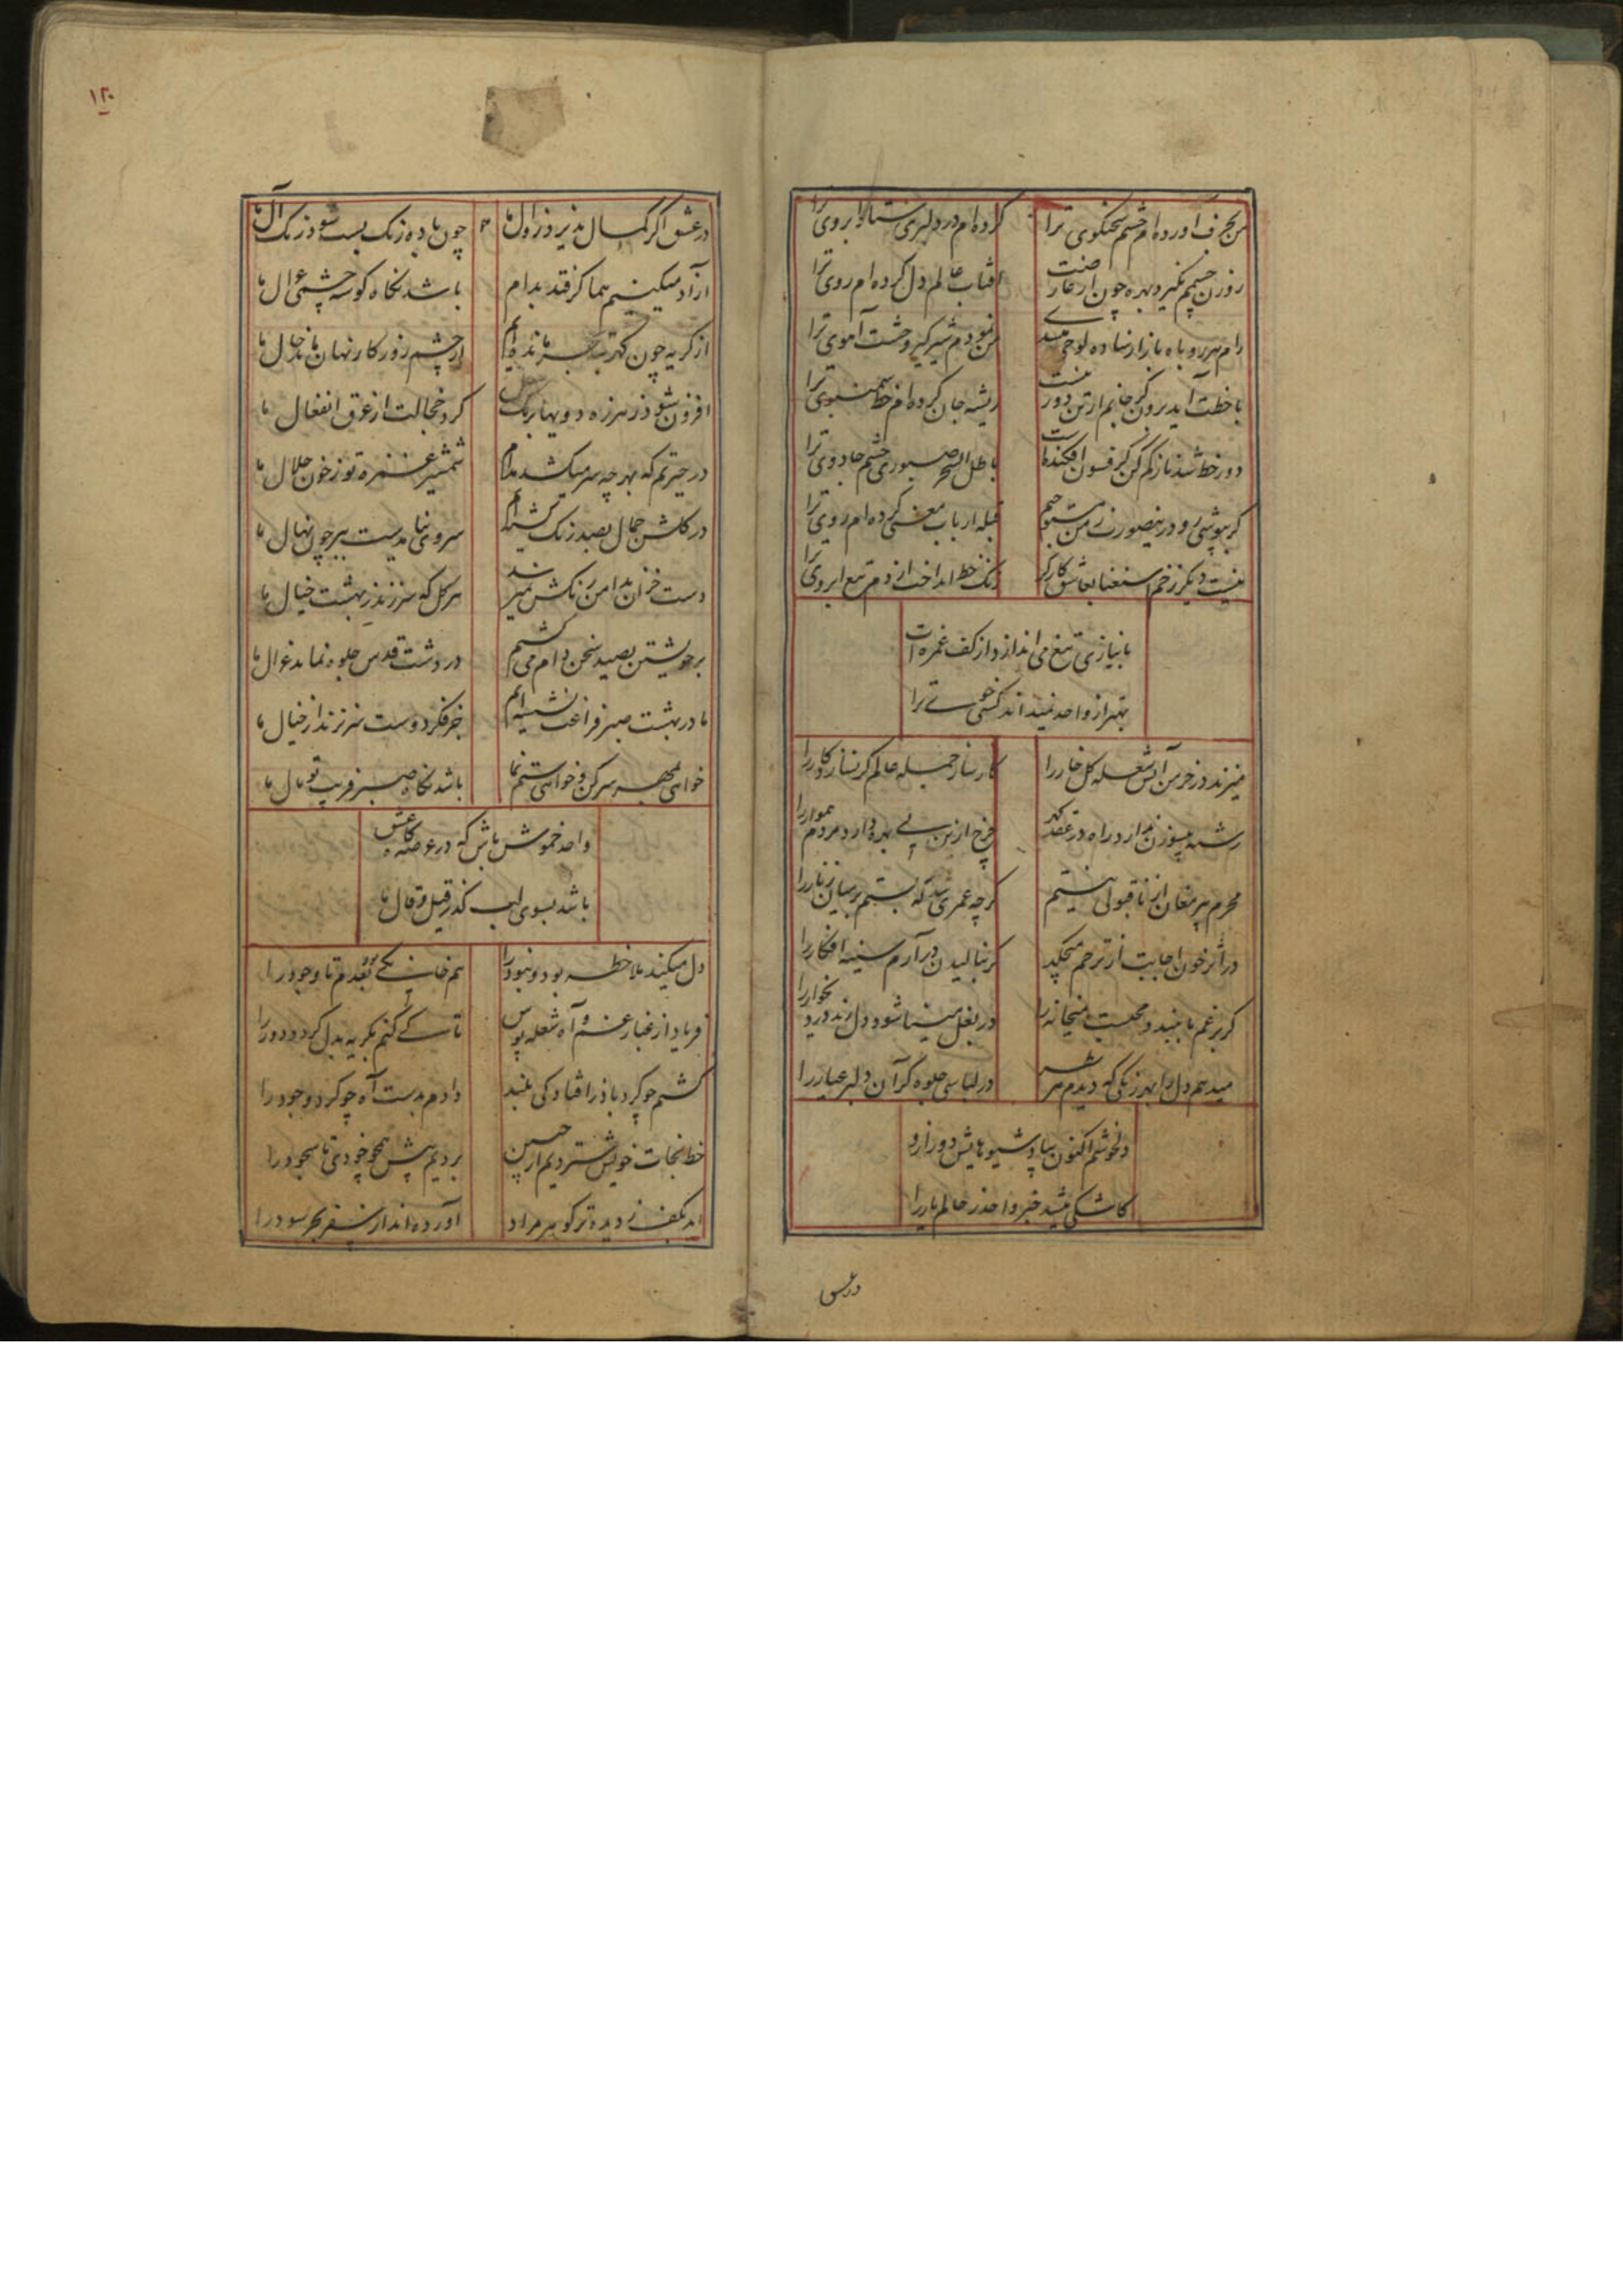 من بحرف آورده‌ام چشم سخنگوی ترا
کرده‌ام در دلبری ابروی ترا
روزن چشمم نگیرد بهره چون از عارضت
آفتاب عالم دل کرده‌ام روی ترا
من نمودم شیرگیر وحشت آهوی ترا
با خطت آید برون گر جانم از تن دور نیست
ریشه جان کرده‌ام خط سمنبوی ترا
دور خط شد ناز کم کن کز فسون افکنده است
باطل السحر صبوری چشم جادوی ترا
گر بپوشی رو درینصورت ز من
قبله ارباب معنی کرده‌ام روی ترا
نیست دیگر زخم استغنا بعاشق کارگر
زنگ خط انداخت از دم تیغ ابروی ترا
بانیازی تیغ می‌اندازد از کف غمزه‌ات
بهتر از واحد نمیداند کسی خوی ترا
میزند در خرمن آتش شعله گل خار را
کارساز جمله عالم گر نسازد کار را
رشته بی‌سوزن ندارد راه در عقد گهر
چرخ ازین پی بهره دارد مردم هموار را
محرم پیر مغان از ناقبولی نیستم
گرچه عمری شد که بستم بر میان زنار را
در اثر خون اجابت از ترحم میچکد
گر بنالیدن درآرم سینه افکار را
در بغل مینا شود دل رند دردی‌خوار را
میدهم دل را بهر رنگی که دیدم
در لباسی جلوه‌گر آن دلبر عیار را
دلخوشم اکنون بیاد شیوهایش دور ازو
کاشکی میشد خبر واحد ز حالم یار را
در عشق
۱۲۰
در عشق اگر کمال پذیرد زوال ما
چون باده رنگ بست شود رنگ آل ما
آزاد میکنیم هما گر فتد بدام
باشد نگاه گوشه چشمی ما
از گریه چون گهر ته بحر مانده‌ایم
از چشم روزگار نهان ماند حال ما
افزون شود ز هرزه دویها
گرد خجالت از عرق انفعال ما
در حیرتم که بهر چه سر میکشد مدام
شمشیر غمزه تو ز خون حلال ما
در گلشن جمال بصد رنگ گشته‌ایم
سروی نیامدست ببر چون نهال ما
دست خزان بدامن رنگش نمیرسد
هر گل که سر زند ز بهشت خیال ما
بر خویشتن بصید سخن دام می‌کشیم
در دشت قدس جلوه نماید غزال ما
ما در بهشت صبر فراغت نشسته‌ایم
جز فکر دوست سر نزند از خیال ما
خواهی بمهر سر کن و خواهی ستم نما
باشد نگاه صبر فریب تو مال ما
واحد خموش باش که در عرصه‌گاه عشق
باشد بسوی لب گذر قیل و قال ما
دل میکند ملاحظه بود و نبود را
هم خانه یکی عدم تا وجود را
فریاد از غبار غم و آه شعله پوش
تا کی کنم بگریه بدل گرد و دود را
گشتم چو گردباد ز افتادگی بلند
دادم بدست آه چو گرد وجود را
خط نجات خویش ستردیم از جبین
بردیم پیش همچو خودی تا سجود را
اند بکف ز دیده تر گوهر مراد
آورده‌اند از سفر بحر سود را